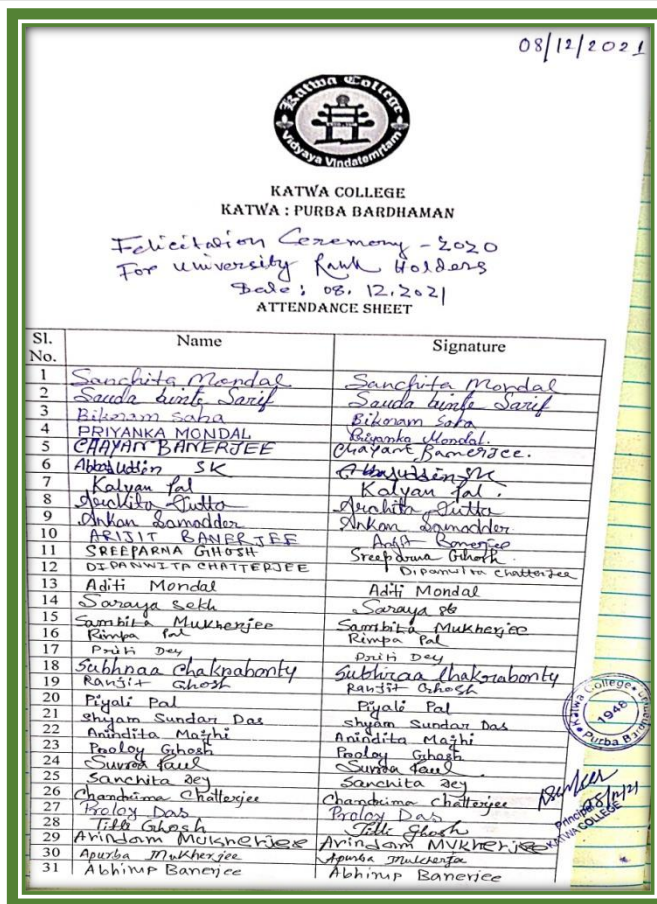 08/12/2021
Katwa College
Vidyaya Vindatemrtam
KATWA COLLEGE
KATWA : PURBA BARDHAMAN
Felicitation Ceremony - 2020
For University Rank Holders
Date: 08.12.2021
ATTENDANCE SHEET
Sl. No. Name Signature
1 Sanchita Mondal Sanchita Mondal
2 Sauda binte Sarif Sauda binte Sarif
3 Bikoram Saha Bikoram Saha
4 PRIYANKA MONDAL Priyanka Mondal.
5 CHAYAN BANERJEE Chayan Banerjee.
6 Abbasuddin SK Abbasuddin SK
7 Kalyan Pal Kalyan Pal.
8 Archita Dutta Archita Dutta
9 Ankan Samodder Ankan Samodder
10 ARIJIT BANERJEE Arijit Banerjee
11 SREEPARNA GHOSH Sreeparna Ghosh.
12 DIPANWITA CHATTERJEE Dipanwita Chatterjee
13 Aditi Mondal Aditi Mondal
14 Saraya Sekh Saraya
15 Sambita Mukherjee Sambita Mukherjee
16 Rimpa Pal Rimpa Pal
17 Priti Dey Priti Dey
18 Subhraa Chakraborty Subhraa Chakraborty
19 Ranjit Ghosh Ranjit Ghosh
20 Piyali Pal Piyali Pal
21 Shyam Sundar Das Shyam Sundar Das
22 Anindita Majhi Anindita Majhi
23 Prolay Ghosh Prolay Ghosh
24 Suvra Paul Suvra Paul
25 Sanchita Dey Sanchita Dey
26 Chandrima Chatterjee Chandrima Chatterjee
27 Proloy Das Proloy Das
28 Titli Ghosh Titli Ghosh
29 Arindam Mukherjee Arindam Mukherjee
30 Apurba Mukherjee Apurba Mukherjee
31 Abhirup Banerjee Abhirup Banerjee
Katwa College
1948
Purba
Principal
KATWA COLLEGE